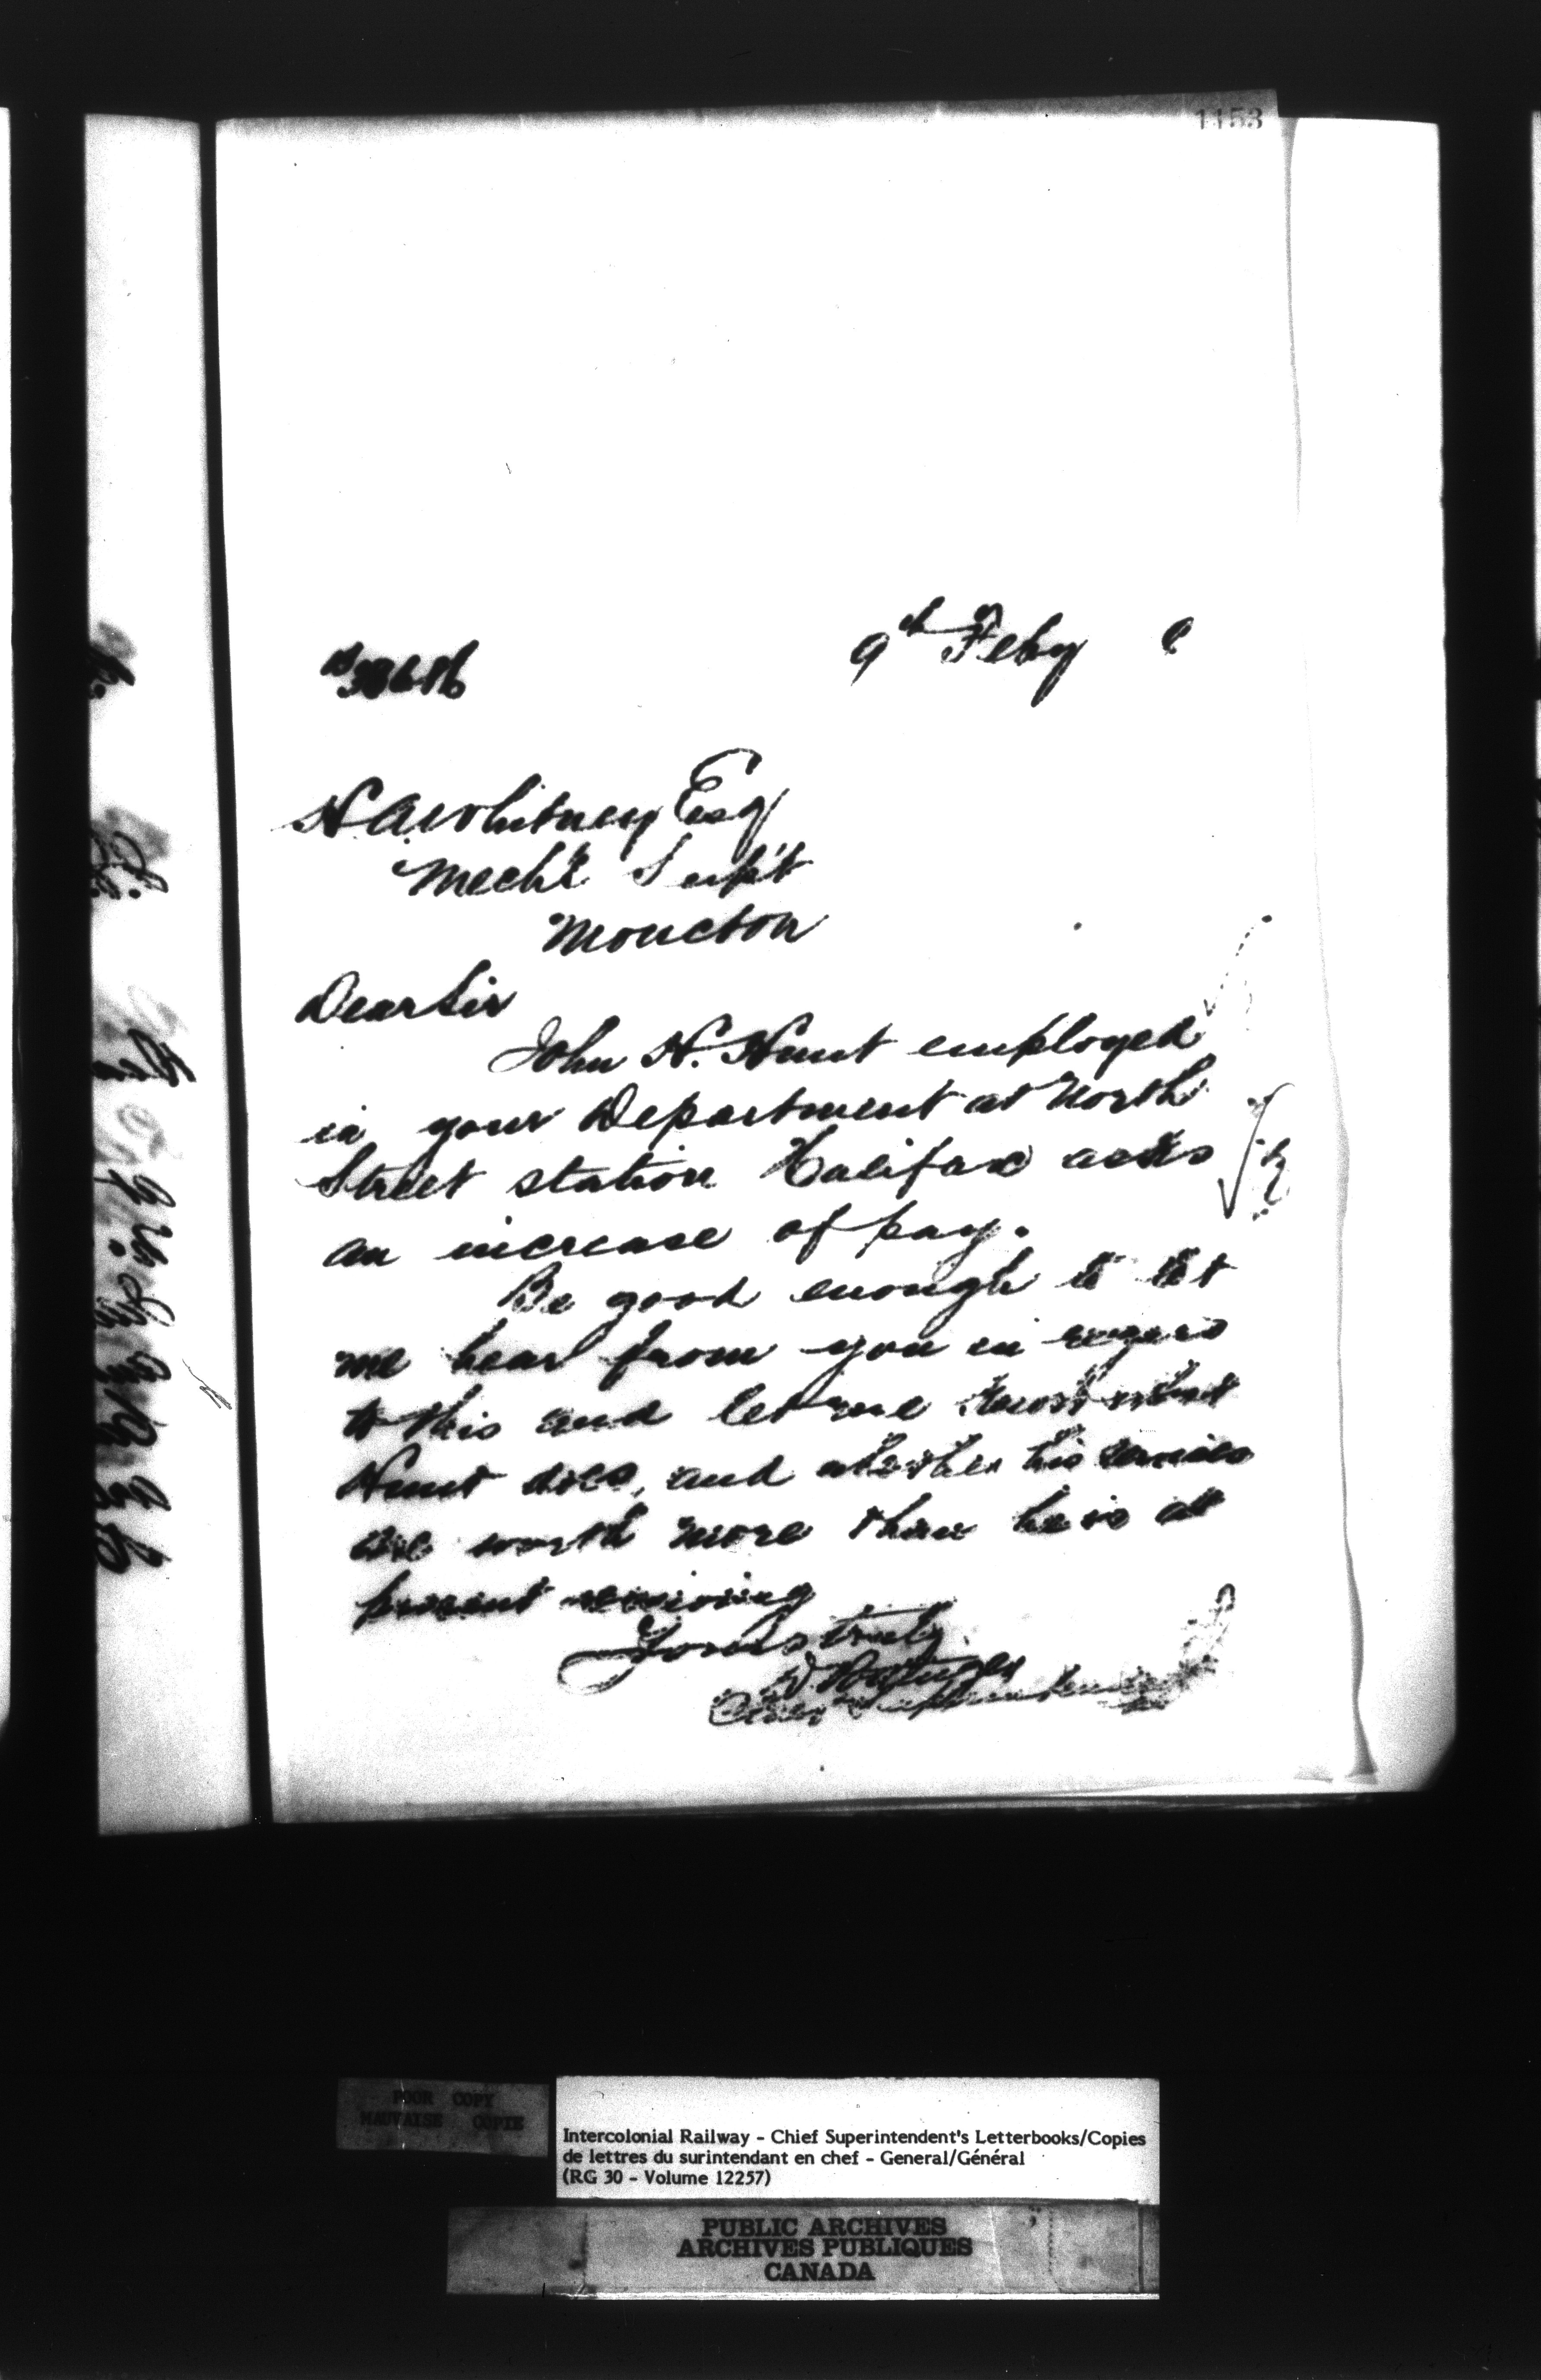 1153
9th Feby
H A Whitney Esq
Mech'l Sup't
Moncton
Dear Sir
John H. Hunt employed
in your Department at North
Street station Halifax asks
an increase of pay.
Be good enough to let
me hear from you in regard
to this and let me know what
Hunt does, and whether his services
are worth more than he is at
present receiving
Yours truly
D. Pottinger
Chief Superintendent
POOR COPY
MAUVAISE COPIE
Intercolonial Railway - Chief Superintendent's Letterbooks/Copies
de lettres du surintendant en chef - General/Général
(RG 30 - Volume 12257)
PUBLIC ARCHIVES
ARCHIVES PUBLIQUES
CANADA